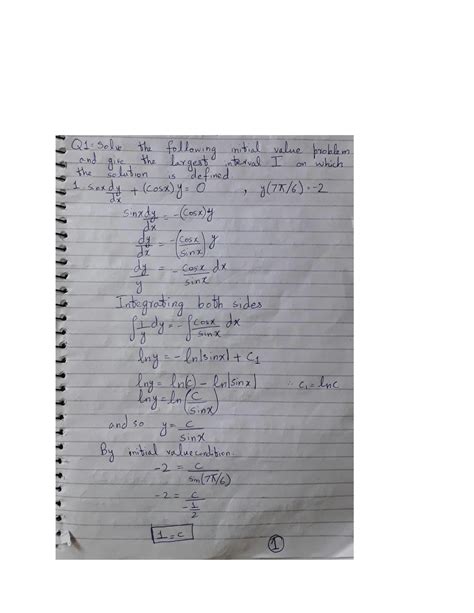 Q1- Solve the following initial value problem
and give the largest interval I on which
the solution is defined
1. sinx dy/dx + (cosx)y = 0 , y(7π/6) = -2
sinx dy/dx = -(cosx)y
dy/dx = -(cosx/sinx) y
dy/y = - cosx/sinx dx
Integrating both sides
∫ 1/y dy = -∫ cosx/sinx dx
lny = -ln|sinx| + C₁
lny = ln(C) - ln|sinx| ∵ C₁ = lnC
lny = ln(C/sinx)
and so y = C/sinx
By initial value condition.
-2 = C/sin(7π/6)
-2 = C/-1/2
1 = C
1